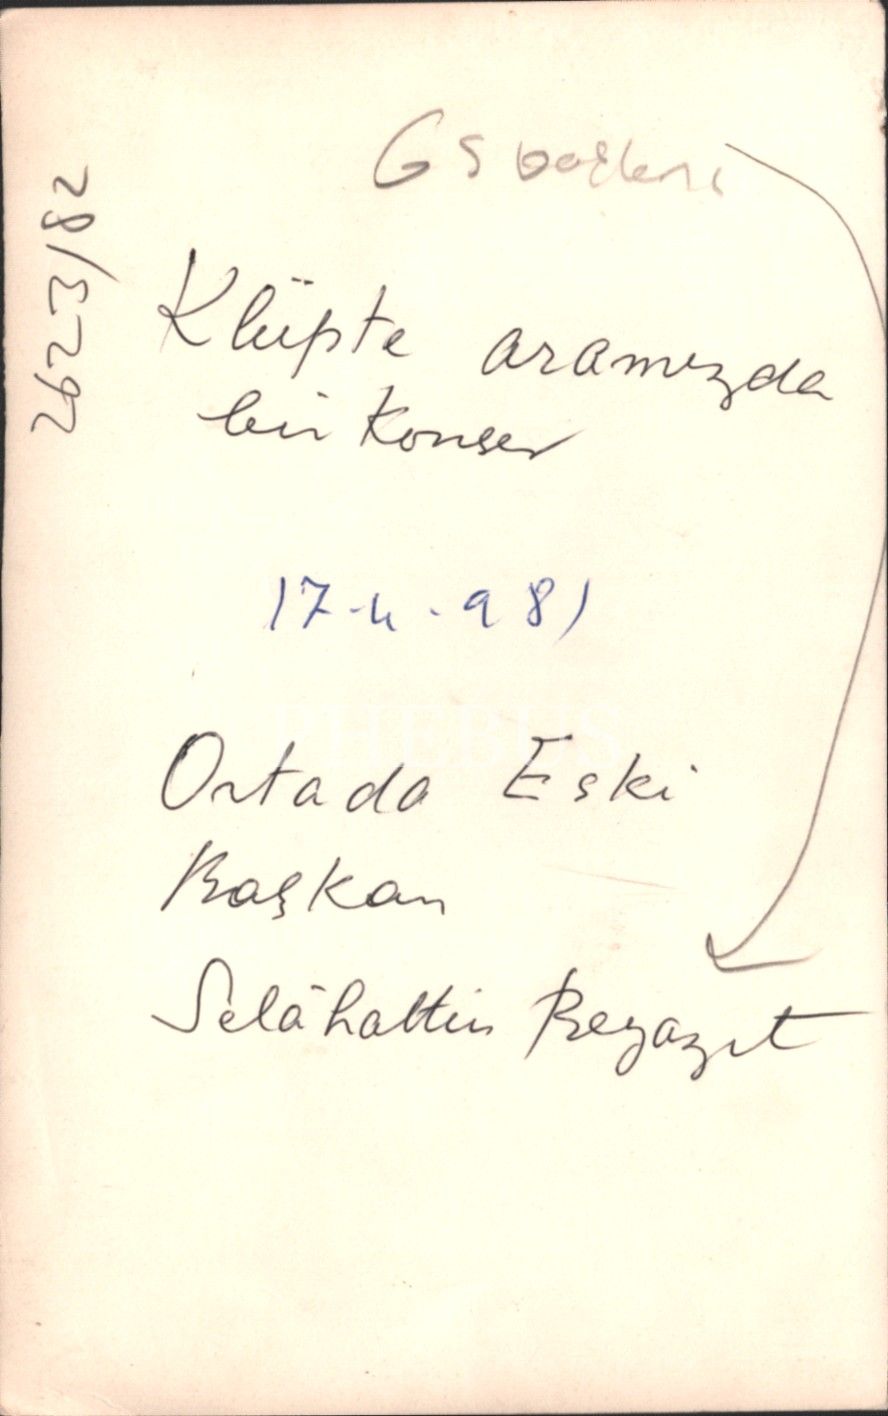 2623/82
GS
Klüpte aramızda
bir Konser
17-4-981
PHEBUS
Ortada Eski
Başkan
Selâhattin Beyazıt